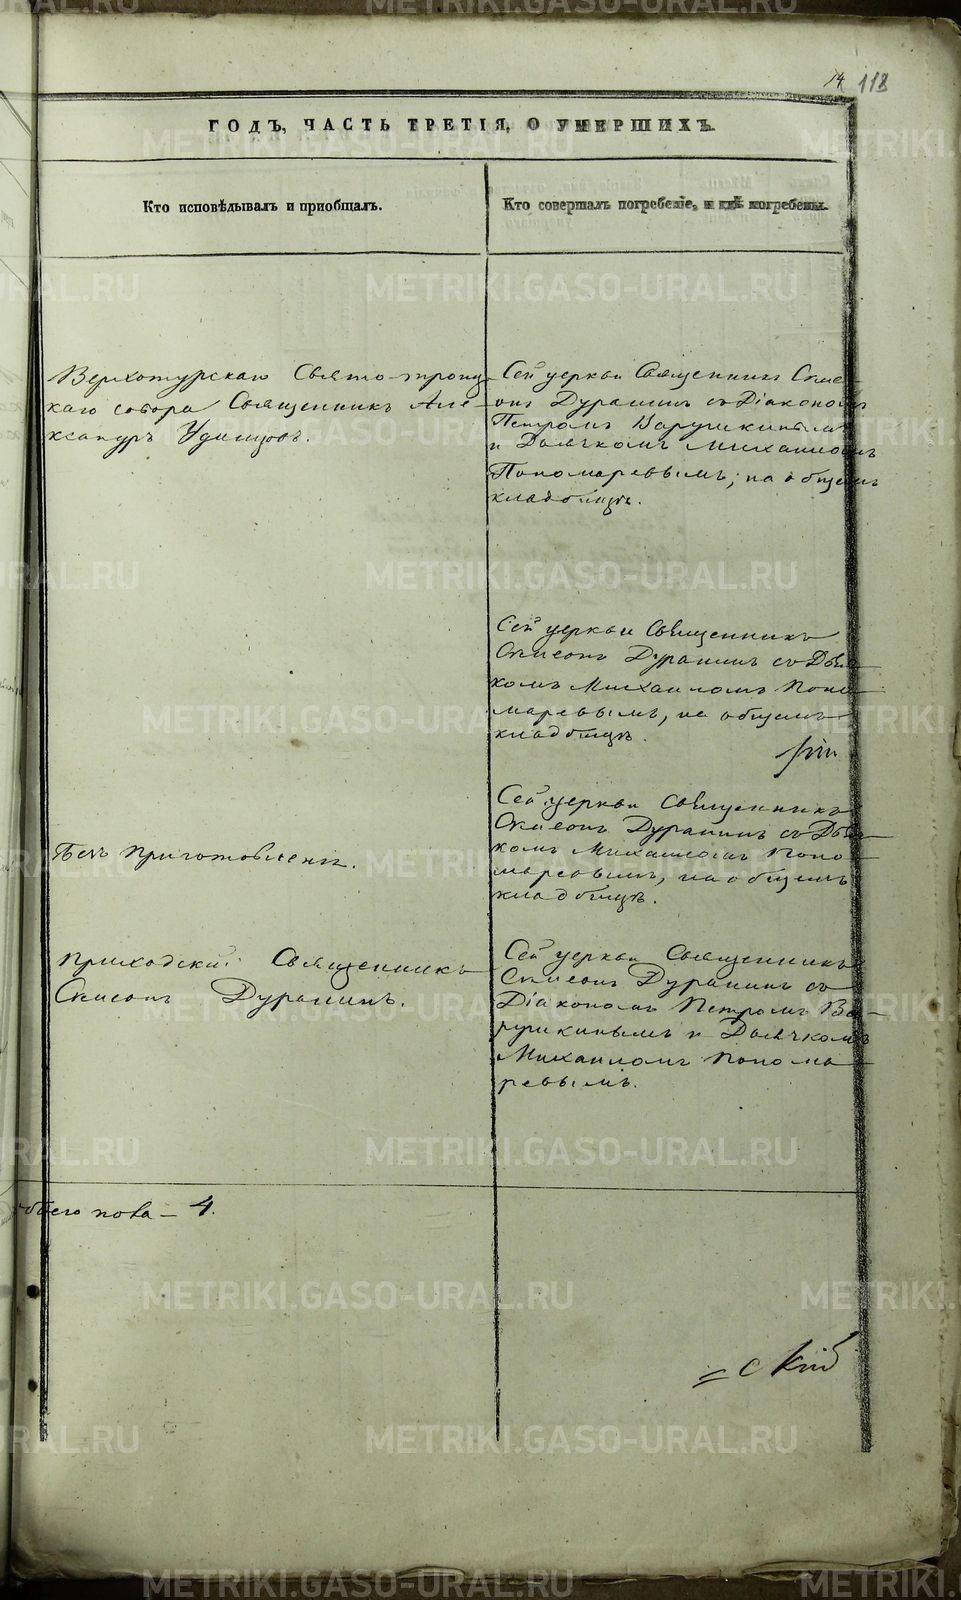 14 118
ГОДЪ, ЧАСТЬ ТРЕТІЯ, О УМЕРШИХЪ.
Кто исповѣдывалъ и пріобщалъ.
Кто совершалъ погребеніе, и гдѣ погребены.
Верхотурскаго Свято-троиц-
каго собора Священникъ Але-
ксандръ Удинцовъ.
Сей церкви Священникъ Симе-
онъ Дуранинъ съ Діакономъ
Петромъ Варушкинымъ
и Дьячкомъ Михаиломъ
Пономаревымъ; на общемъ
кладбищѣ.
Сей церкви Священникъ
Симеонъ Дуранинъ съ Дьяч-
комъ Михаиломъ Поно-
маревымъ, на общемъ
кладбищѣ.
Безъ приготовленія.
Сей церкви Священникъ
Симеонъ Дуранинъ съ Дьяч-
комъ Михаиломъ Поно-
маревымъ, на общемъ
кладбищѣ.
Приходскій Священникъ
Симеонъ Дуранинъ.
Сей церкви Священникъ
Симеонъ Дуранинъ съ
Діакономъ Петромъ Ва-
рушкинымъ и Дьячкомъ
Михаиломъ Понома-
ревымъ.
обоего пола — 4.
METRIKI.GASO-URAL.RU